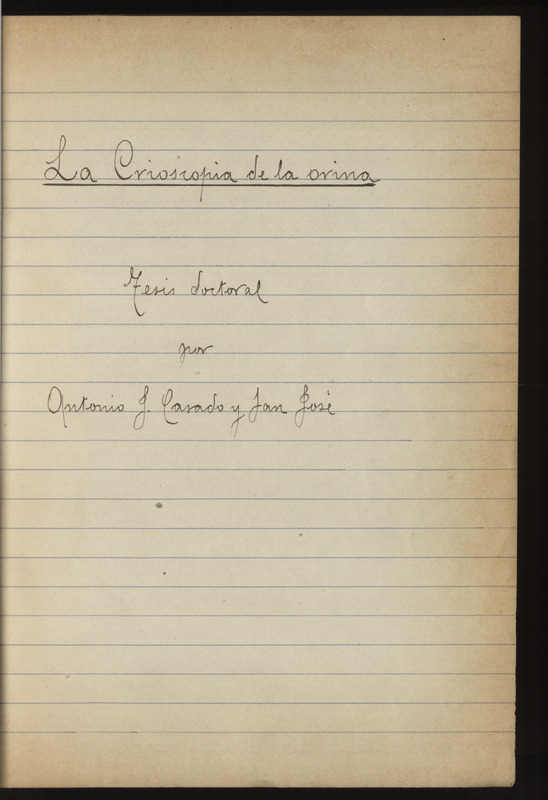 La Crioscopia de la orina
Tesis doctoral
por
Antonio J. Casado y San José